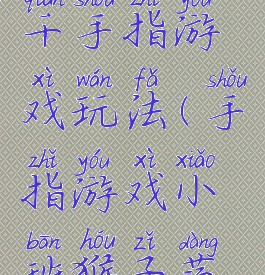 qiān shǒu zhǐ yóu
千手指游
xì wán fǎ shǒu
戏玩法(手
zhǐ yóu xì xiǎo
指游戏小
bān hóu zǐ dàng
班猴子荡